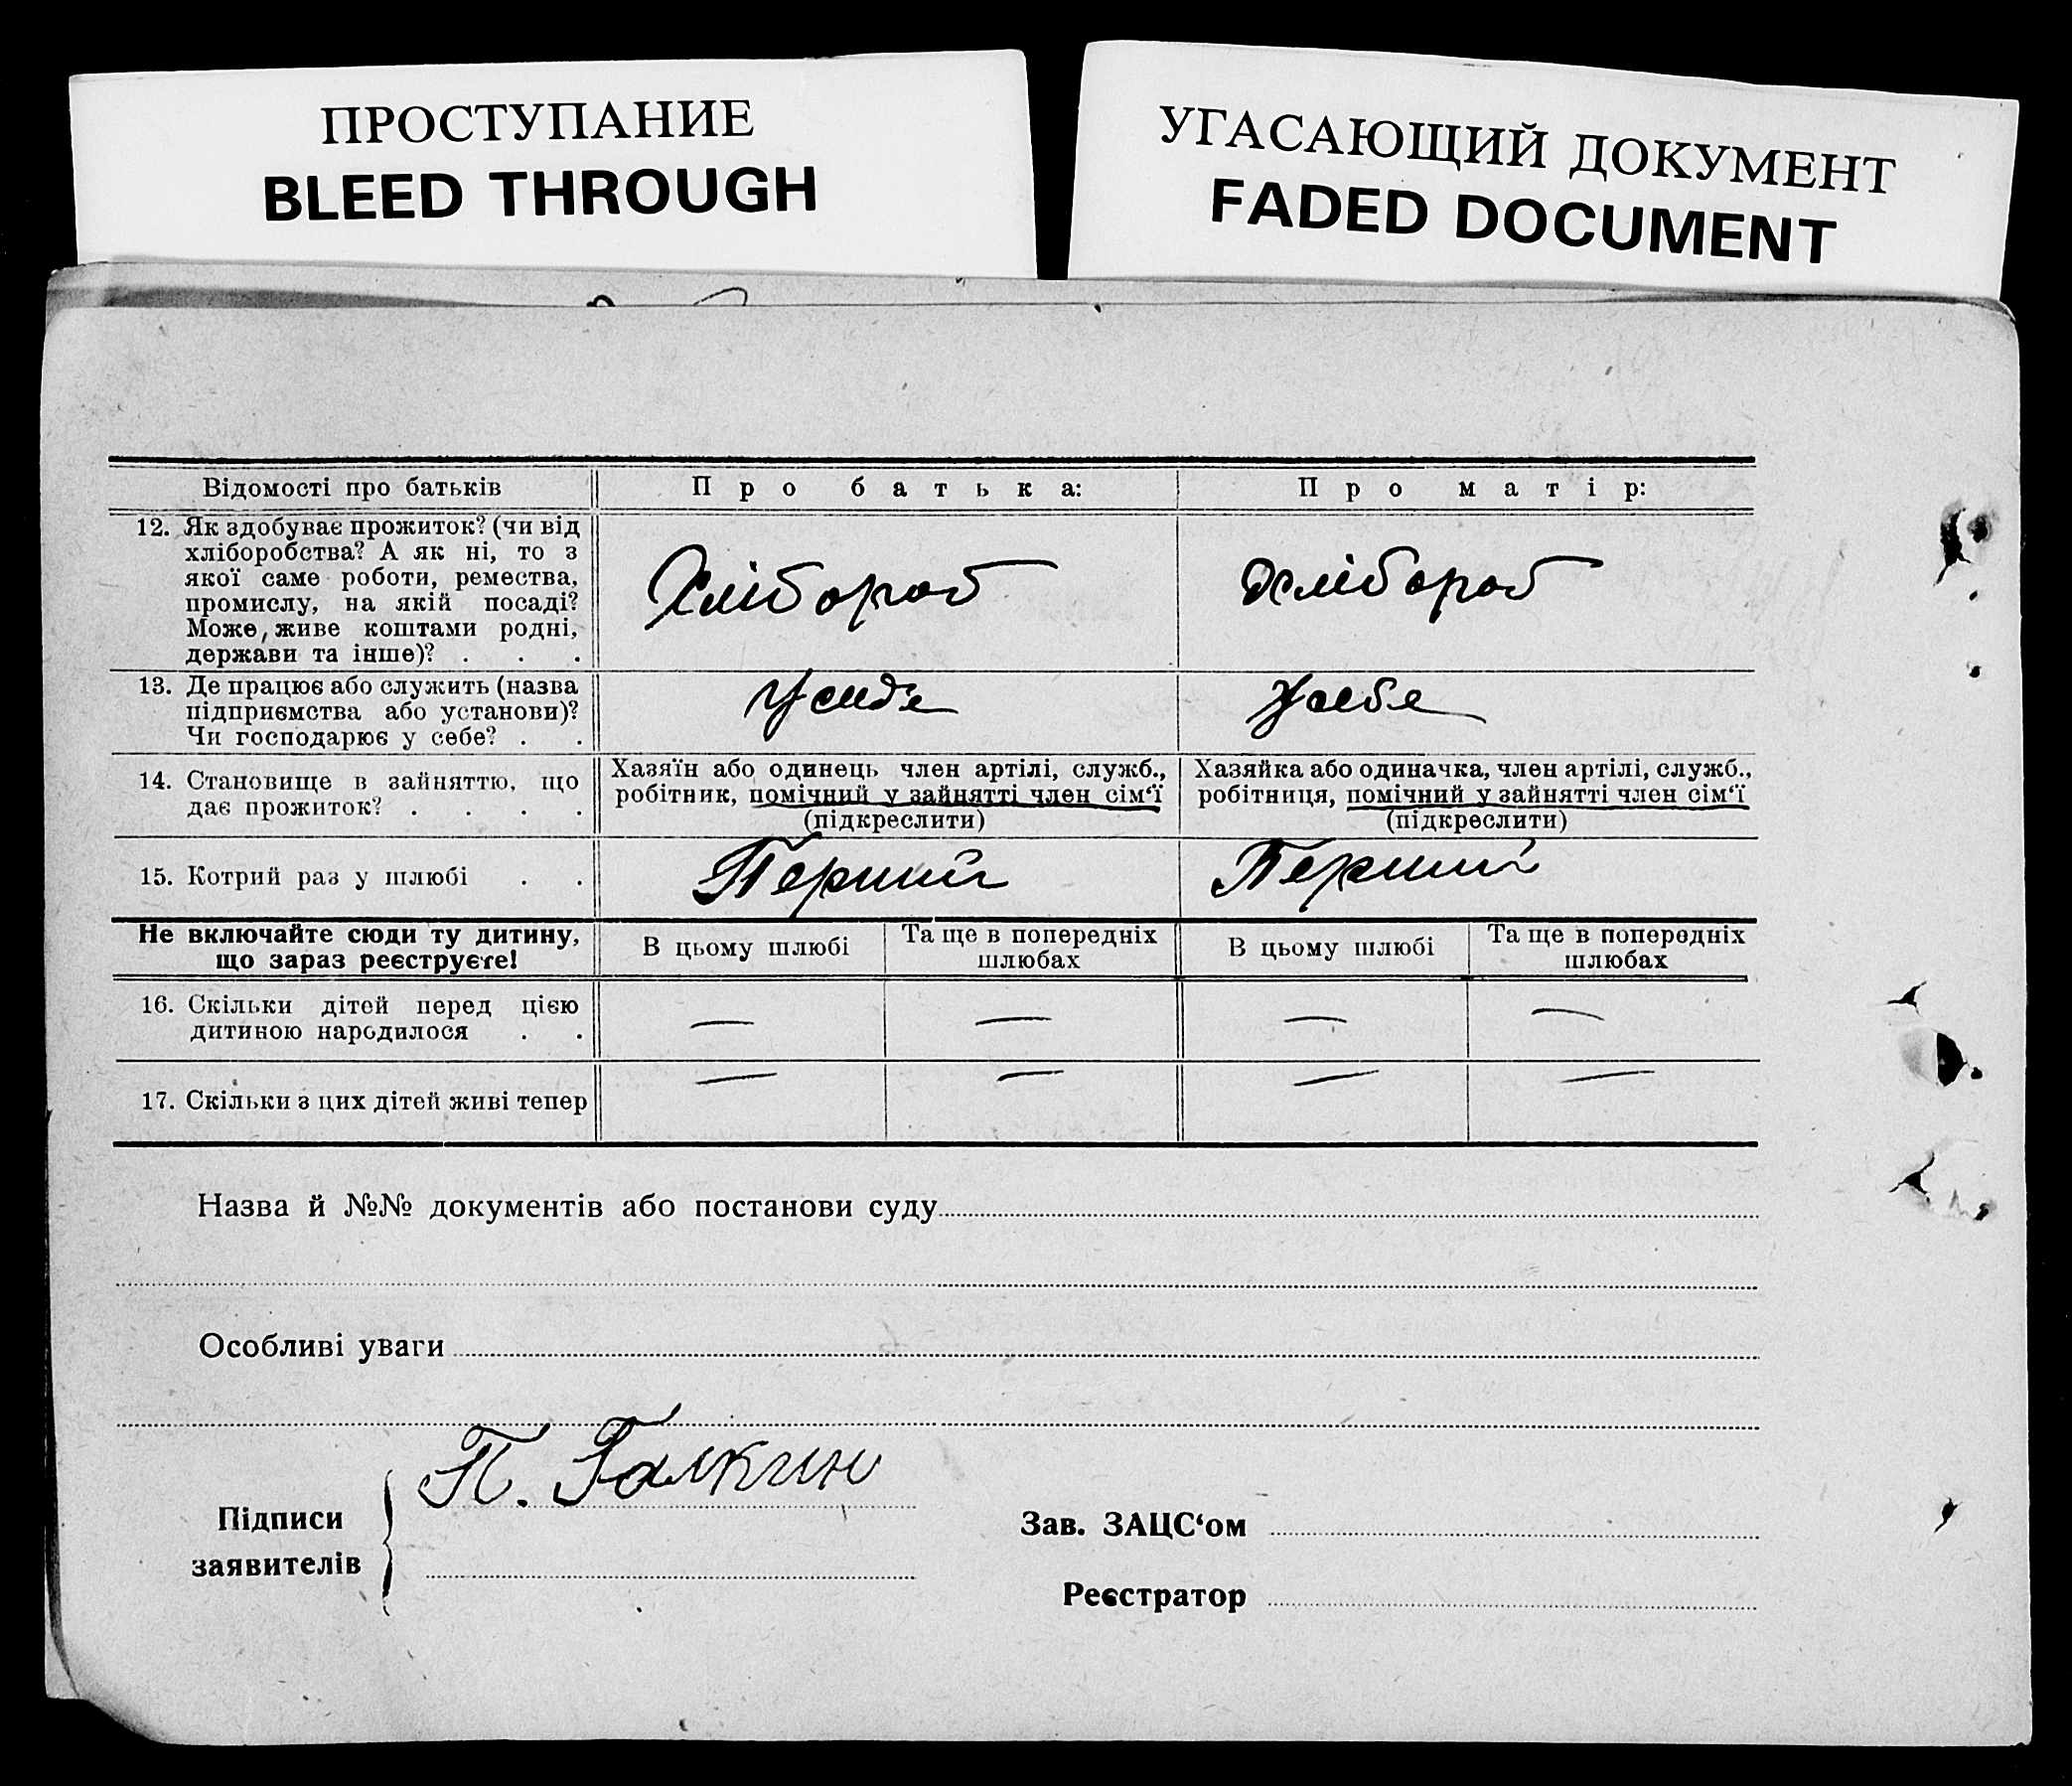 ПРОСТУПАНИЕ
BLEED THROUGH
УГАСАЮЩИЙ ДОКУМЕНТ
FADED DOCUMENT
Відомості про батьків
Про батька:
Про матір:
12. Як здобуває прожиток? (чи від
хліборобства? А як ні, то з
якої саме роботи, ремества,
промислу, на якій посаді?
Може, живе коштами родні,
держави та інше)? . . .
Хлібороб
Хлібороб
13. Де працює або служить (назва
підприємства або установи)?
Чи господарює у себе? . .
У себе
У себе
14. Становище в зайняттю, що
дає прожиток? . . . .
Хазяїн або одинець член артілі, служб.,
робітник, помічний у зайнятті член сім‘ї
(підкреслити)
Хазяйка або одиначка, член артілі, служб.,
робітниця, помічний у зайнятті член сім‘ї
(підкреслити)
15. Котрий раз у шлюбі . .
Перший
Перший
Не включайте сюди ту дитину,
що зараз реєструєте!
В цьому шлюбі
Та ще в попередніх
шлюбах
В цьому шлюбі
Та ще в попередніх
шлюбах
16. Скільки дітей перед цією
дитиною народилося . .
— — — —
17. Скільки з цих дітей живі тепер
— — — —
Назва й №№ документів або постанови суду
Особливі уваги
Підписи
заявителів
П. Галкин
Зав. ЗАЦС‘ом
Реєстратор